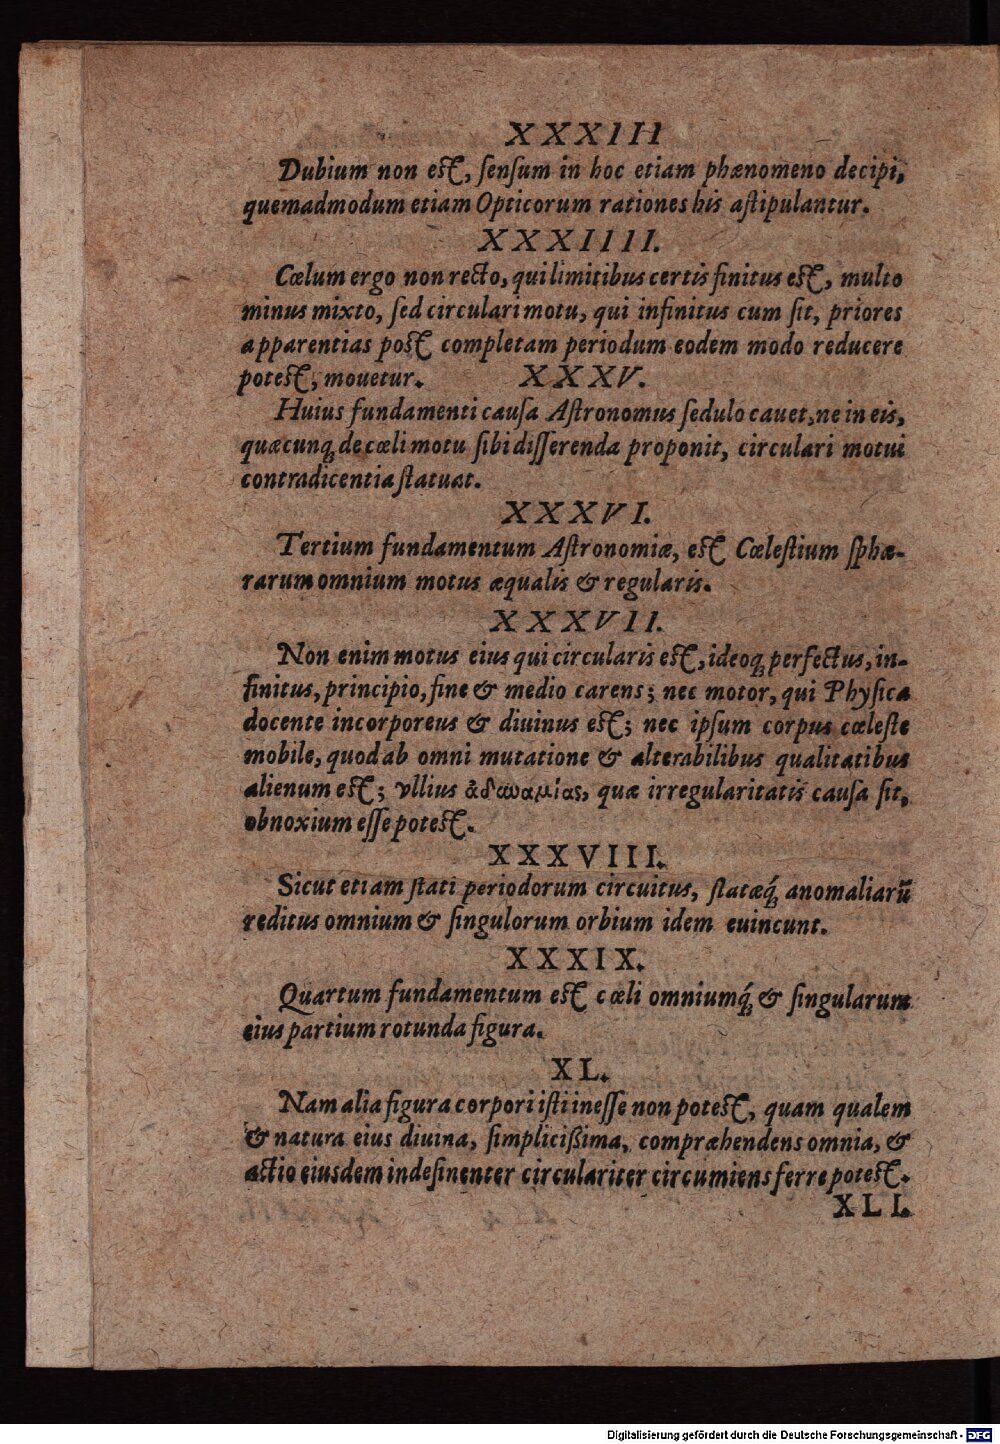 XXXIII
Dubium non est, sensum in hoc etiam phænomeno decipi,
quemadmodum etiam Opticorum rationes his astipulantur.
XXXIIII.
Cœlum ergo non recto, qui limitibus certis finitus est, multo
minus mixto, sed circulari motu, qui infinitus cum sit, priores
apparentias post completam periodum eodem modo reducere
potest, mouetur. XXXV.
Huius fundamenti causa Astronomus sedulo cauet, ne in eis,
quæcunq; de cœli motu sibi disserenda proponit, circulari motui
contradicentia statuat.
XXXVI.
Tertium fundamentum Astronomiæ, est Cœlestium sphæ-
rarum omnium motus æqualis & regularis.
XXXVII.
Non enim motus eius qui circularis est, ideoq; perfectus, in-
finitus, principio, fine & medio carens; nec motor, qui Physica
docente incorporeus & diuinus est; nec ipsum corpus cœleste
mobile, quod ab omni mutatione & alterabilibus qualitatibus
alienum est; vllius ἀδυναμίας, quæ irregularitatis causa sit,
obnoxium esse potest.
XXXVIII.
Sicut etiam stati periodorum circuitus, statæq́; anomaliarū
reditus omnium & singulorum orbium idem euincunt.
XXXIX.
Quartum fundamentum est cœli omniumq́; & singularum
eius partium rotunda figura.
XL.
Nam alia figura corpori isti inesse non potest, quam qualem
& natura eius diuina, simplicißima, compræhendens omnia, &
actio eiusdem indesinenter circulariter circumiens ferre potest.
XLI.
Digitalisierung gefördert durch die Deutsche Forschungsgemeinschaft - DFG